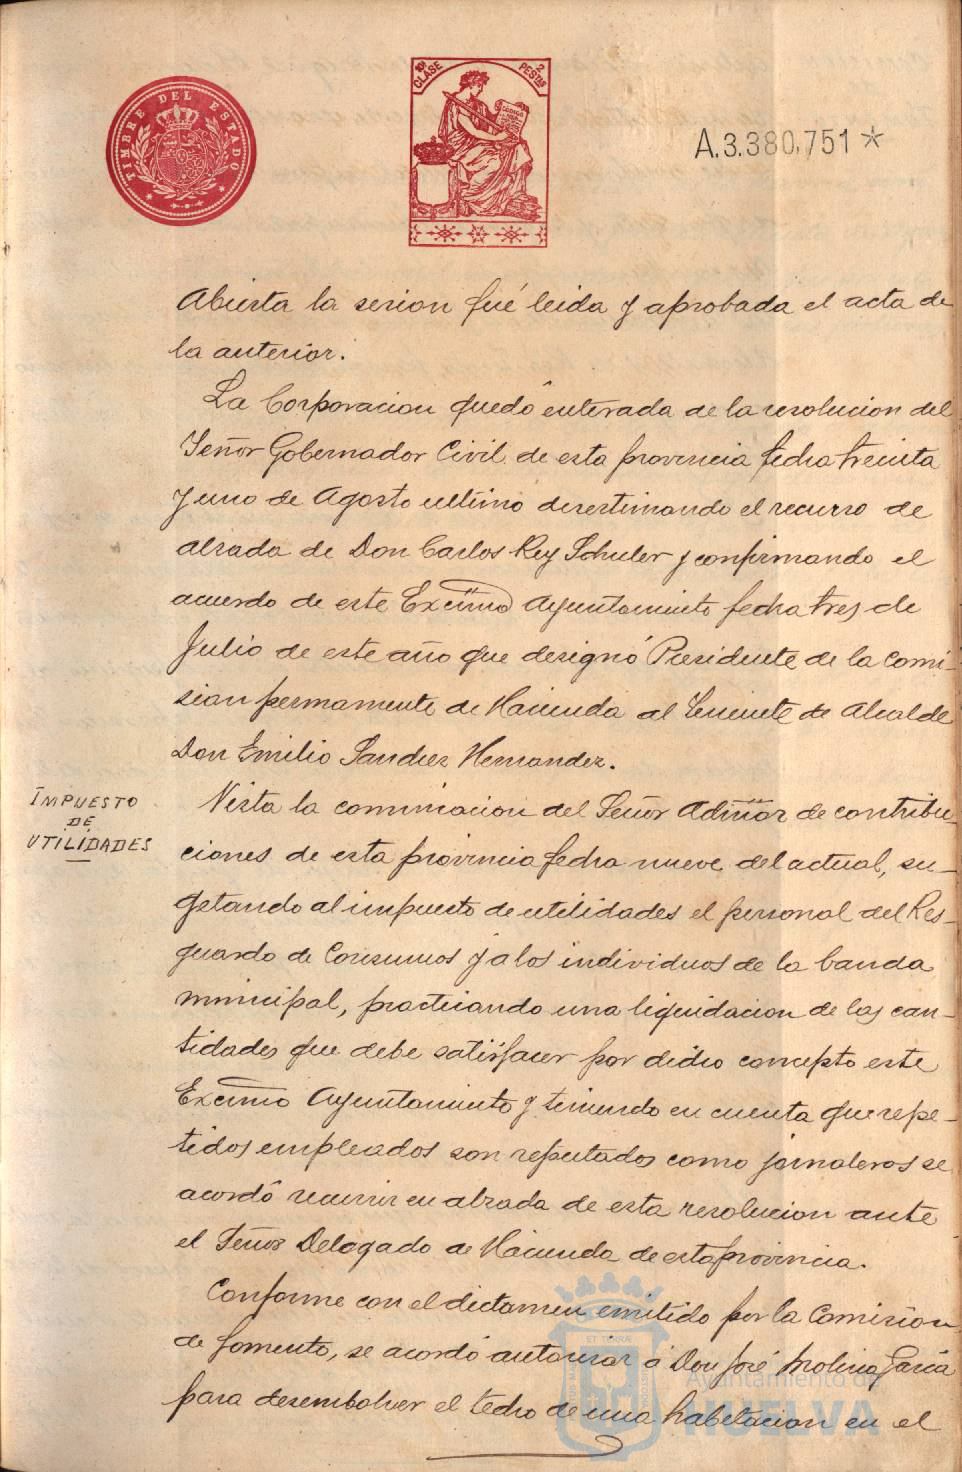 TIMBRE DEL ESTADO
10ª CLASE
2 PESTAS
A.3.380.751*
Abierta la sesion fué leida y aprobada el acta de
la anterior.
La Corporacion quedó enterada de la resolucion del
Señor Gobernador Civil de esta provincia fecha treinta
y uno de Agosto ultimo desestimando el recurso de
alzada de Don Carlos Rey Schuler y confirmando el
acuerdo de este Excmo Ayuntamiento fecha tres de
Julio de este año que designó Presidente de la Comi-
sion permamente de Hacienda al Teniente de Alcalde
Don Emilio Sanchez Hernandez.
IMPUESTO
DE
UTILIDADES
Vista la comunicacion del Señor Admor de contribu-
ciones de esta provincia fecha nueve del actual, su-
getando al impuesto de utilidades el personal del Res-
guardo de Consumos y a los individuos de la banda
municipal, practicando una liquidacion de las can-
tidades que debe satisfacer por dicho concepto este
Excmo Ayuntamiento y teniendo en cuenta que repe-
tidos empleados son reputados como jornaleros se
acordó recurrir en alzada de esta resolucion ante
el Señor Delegado de Hacienda de esta provincia.
Conforme con el dictamen emitido por la Comision
de fomento, se acordó autorizar a Don José Molina Garcia
para desembolver el techo de una habitacion en el
Ayuntamiento de
HUELVA